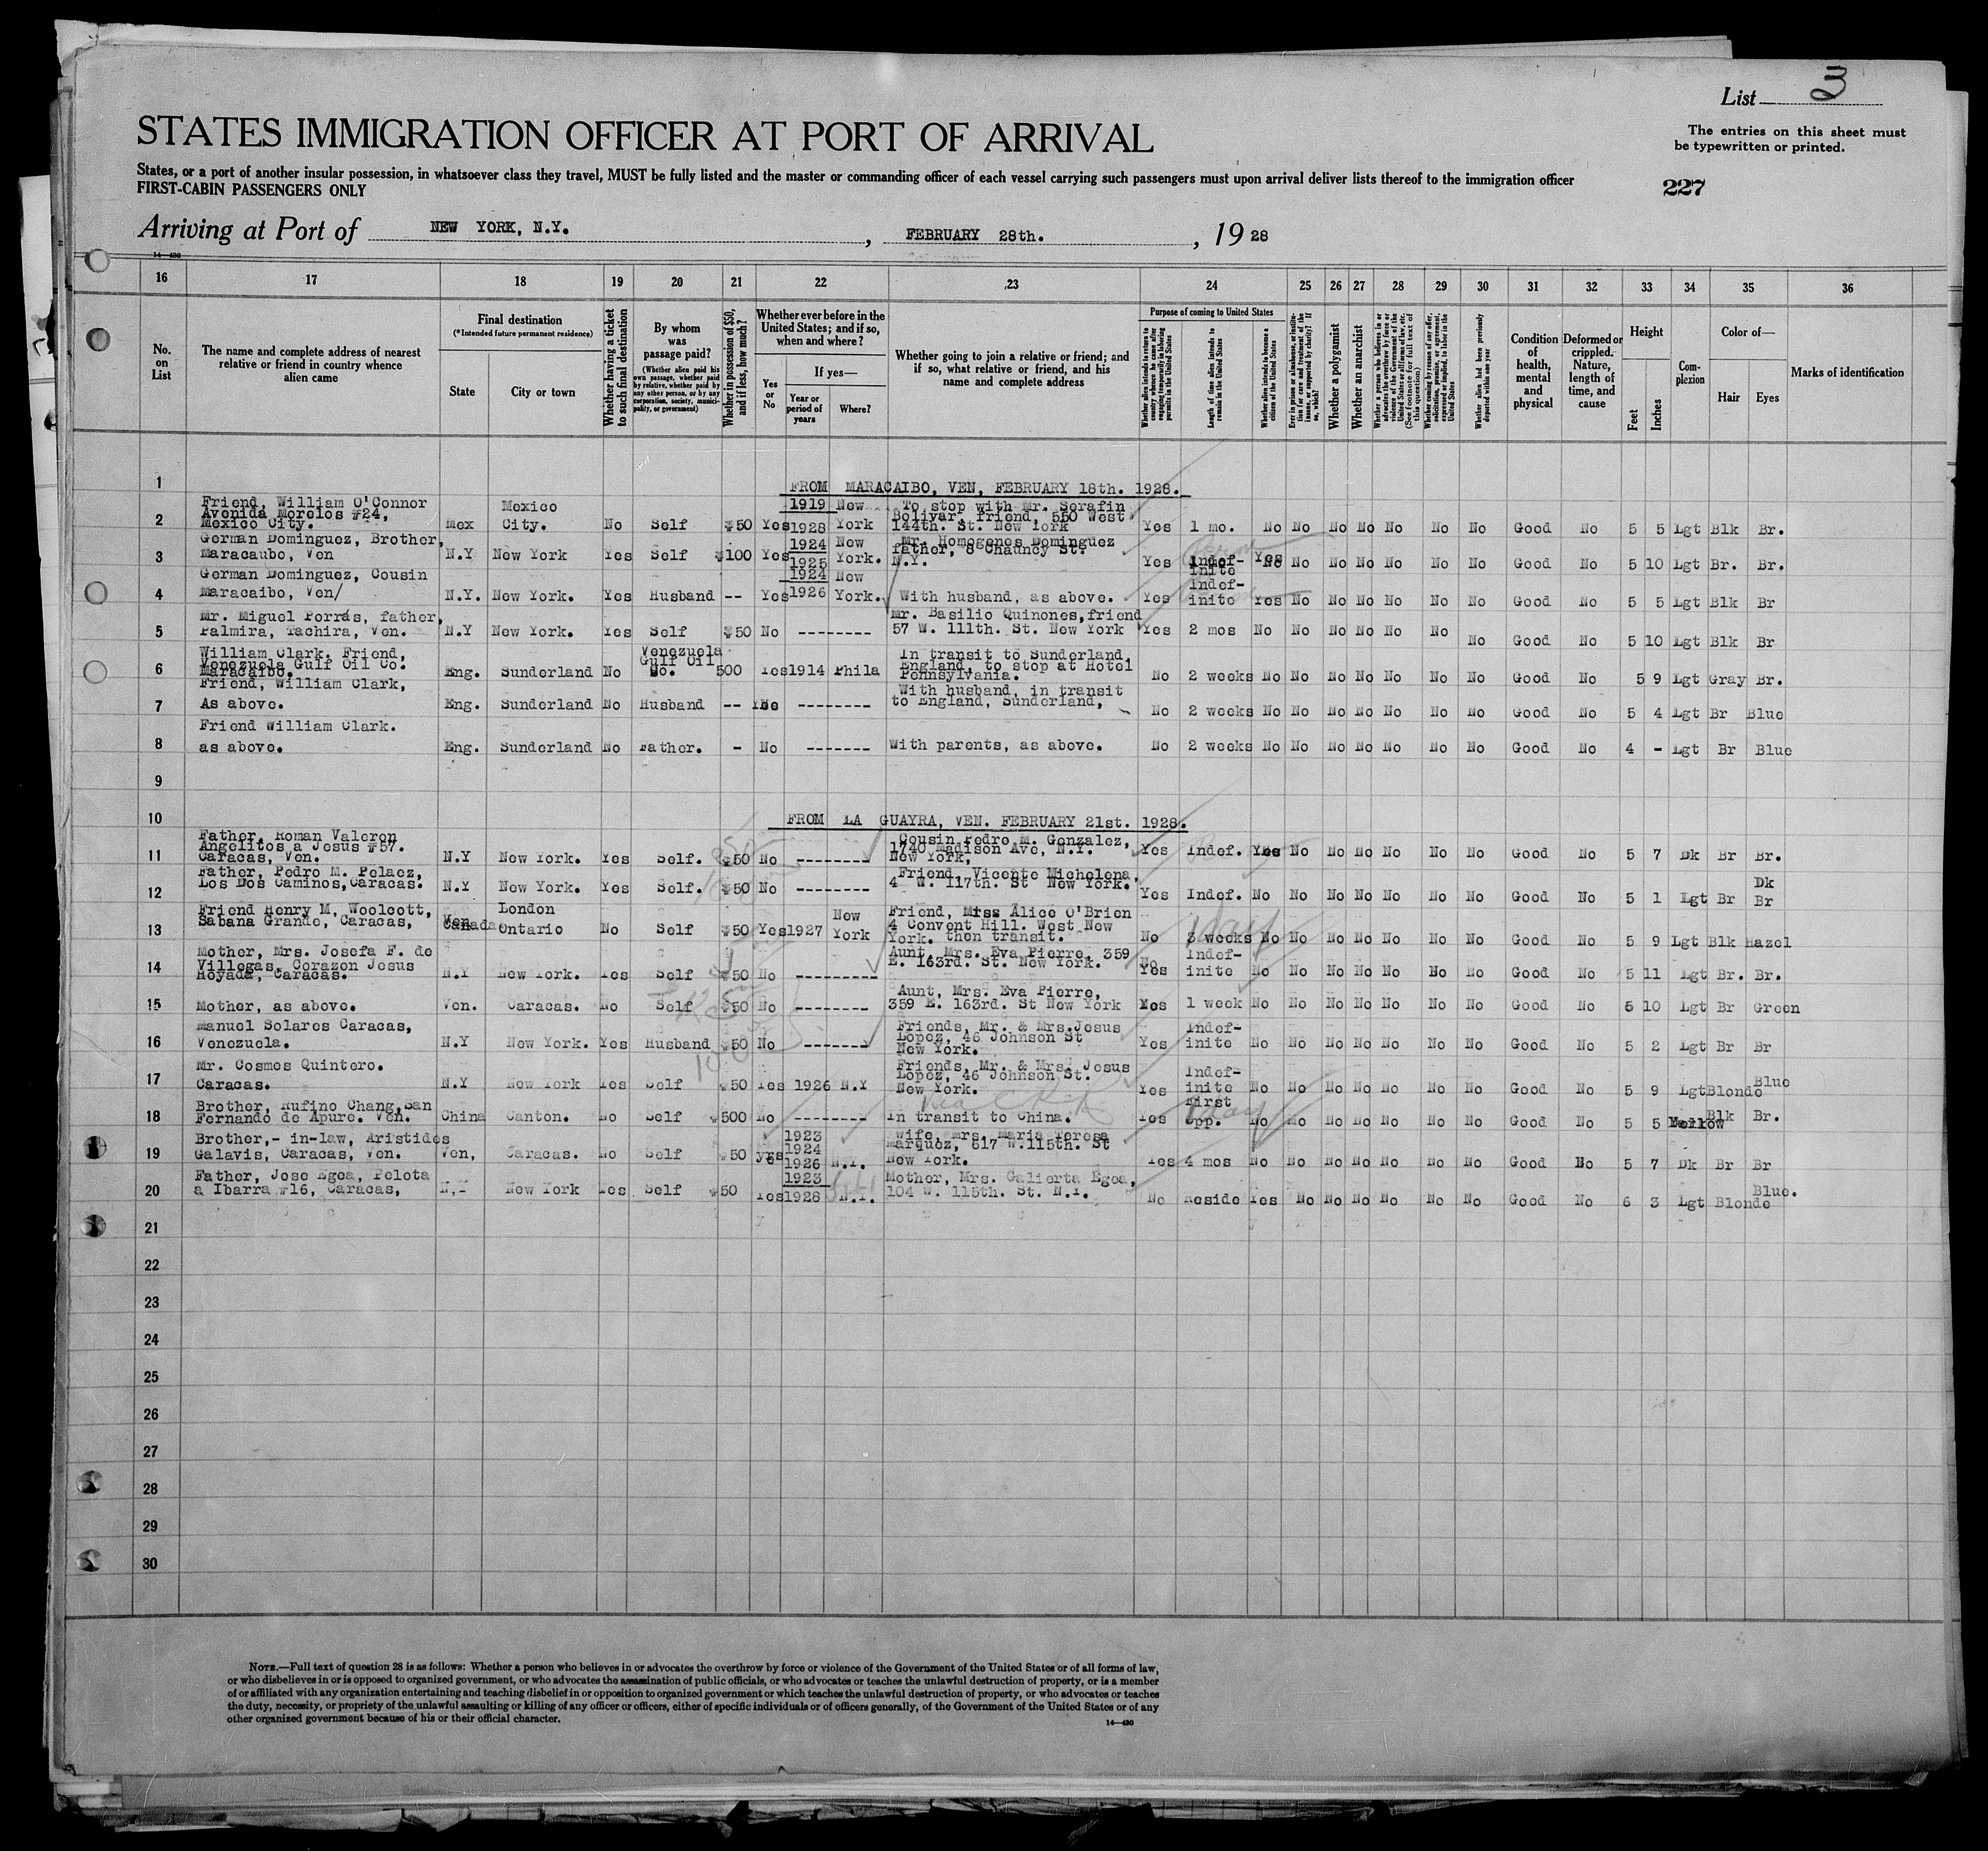 List 3
STATES IMMIGRATION OFFICER AT PORT OF ARRIVAL
The entries on this sheet must
be typewritten or printed.
States, or a port of another insular possession, in whatsoever class they travel, MUST be fully listed and the master or commanding officer of each vessel carrying such passengers must upon arrival deliver lists thereof to the immigration officer
FIRST-CABIN PASSENGERS ONLY
227
Arriving at Port of NEW YORK, N.Y. , FEBRUARY 28th. , 19 28
14—430
16 17 18 19 20 21 22 23 24 25 26 27 28 29 30 31 32 33 34 35 36
No. on List
The name and complete address of nearest relative or friend in country whence alien came
Final destination (*Intended future permanent residence)
State
City or town
Whether having a ticket to such final destination
By whom was passage paid?
(Whether alien paid his own passage, whether paid by relative, whether paid by any other person, or by any corporation, society, municipality, or government)
Whether in possession of $50, and if less, how much?
Whether ever before in the United States; and if so, when and where?
Yes or No
If yes—
Year or period of years
Where?
Whether going to join a relative or friend; and if so, what relative or friend, and his name and complete address
Purpose of coming to United States
Whether alien intends to return to country whence he came after engaging temporarily in laboring pursuits in the United States
Length of time alien intends to remain in the United States
Whether alien intends to become a citizen of the United States
Ever in prison or almshouse, or institution for care and treatment of the insane, or supported by charity? If so, which?
Whether a polygamist
Whether an anarchist
Whether a person who believes in or advocates the overthrow by force or violence of the Government of the United States or all forms of law, etc. (See footnote for full text of this question)
Whether coming by reason of any offer, solicitation, promise, or agreement, expressed or implied, to labor in the United States
Whether alien had been previously deported within one year
Condition of health, mental and physical
Deformed or crippled. Nature, length of time, and cause
Height
Feet
Inches
Complexion
Color of—
Hair
Eyes
Marks of identification
1 FROM MARACAIBO, VEN, FEBRUARY 18th. 1928.
2 Friend, William O'Connor Avenida Morelos #24, Mexico City. Mex Mexico City. No Self $50 Yes 1919 1928 New York To stop with Mr. Serafin Bolivar friend, 550 West 144th. St. New York Yes 1 mo. No No No No No No No Good No 5 5 Lgt Blk Br.
3 German Dominguez, Brother, Maracaubo, Ven N.Y New York Yes Self $100 Yes 1924 1925 New York. Mr. Homogenes Dominguez father, 8 Chauncy St. N.Y. Yes Indef- inite Yes No No No No No No No Good No 5 10 Lgt Br. Br.
4 German Dominguez, Cousin Maracaibo, Ven/ N.Y. New York. Yes Husband -- Yes 1924 1926 New York. With husband, as above. Yes Indef- inite Yes No No No No No No Good No 5 5 Lgt Blk Br
5 Mr. Miguel Porrás, father, Palmira, Tachira, Ven. N.Y New York. Yes Self $50 No -------- Mr. Basilio Quinones,friend 57 W. 111th. St. New York Yes 2 mos No No No No No No No Good No 5 10 Lgt Blk Br
6 William Clark, Friend, Venezuela Gulf Oil Co. Maracaibo. Eng. Sunderland No Venezuela Gulf Oil Co. 500 Yes 1914 Phila In transit to Sunderland England, to stop at Hotel Pennsylvania. No 2 weeks No No No No No No No Good No 5 9 Lgt Gray Br.
7 Friend, William Clark, As above. Eng. Sunderland No Husband -- No -------- With husband, in transit to England, Sunderland, No 2 weeks No No No No No No No Good No 5 4 Lgt Br Blue
8 Friend William Clark. as above. Eng. Sunderland No Father. - No ------- With parents, as above. No 2 weeks No No No No No No No Good No 4 - Lgt Br Blue
9
10 FROM LA GUAYRA, VEN. FEBRUARY 21st. 1928.
11 Father, Roman Valeron Angelitos a Jesus #57. Caracas, Ven. N.Y New York. Yes Self. $50 No -------- Cousin Pedro M. Gonzalez, 1740 Madison Ave, N.Y. New York, Yes Indef. Yes No No No No No No Good No 5 7 Dk Br Br.
12 Father, Pedro M. Pelaez, Los Dos Caminos,Caracas. N.Y New York. Yes Self. $50 No -------- Friend, Vicente Michelena, 4 W. 117th. St New York. Yes Indef. No No No No No No No Good No 5 1 Lgt Br Dk Br
13 Friend Henry M, Woolcott, Sabana Grande, Caracas, Ven Canada London Ontario No Self $50 Yes 1927 New York Friend, Miss Alice O'Brien 4 Convent Hill. West New York. then transit. No 3 weeks No No No No No No No Good No 5 9 Lgt Blk Hazel
14 Mother, Mrs. Josefa F. de Villegas, Corazon Jesus Hoyada, Caracas. N.Y New York. Yes Self $50 No --------- Aunt, Mrs. Eva Pierre, 359 E. 163rd. St. New York. No Yes Indef- inite No No No No No No No Good No 5 11 Lgt Br. Br.
15 Mother, as above. Ven. Caracas. No Self $50 No -------- Aunt, Mrs. Eva Pierre, 359 E. 163rd. St New York Yes 1 week No No No No No No No Good No 5 10 Lgt Br Green
16 Manuel Solares Caracas, Venezuela. N.Y New York. Yes Husband $50 No ------- Friends, Mr. & Mrs.Jesus Lopez, 46 Johnson St New York. Yes Indef- inite No No No No No No No Good No 5 2 Lgt Br Br
17 Mr. Cosmos Quintero. Caracas. N.Y New York Yes Self $50 Yes 1926 N.Y Friends, Mr. & Mrs. Jesus Lopez, 46 Johnson St. New York. Yes Indef- inite No No No No No No No Good No 5 9 Lgt Blonde Blue
18 Brother, Rufino Chang,San Fernando de Apure. Ven. China Canton. No Self $500 No -------- In transit to China. Yes First Opp. No No No No No No No Good No 5 5 Yellow Blk Br.
19 Brother,- in-law, Aristides Galavis, Caracas, Ven. Ven, Caracas. No Self $50 yes 1923 1924 1926 N.Y. Wife, Mrs. Maria Teresa Marquez, 617 W.115th. St New York. Yes 4 mos No No No No No No No Good No 5 7 Dk Br Br
20 Father, Jose Egea, Pelota a Ibarra #16, Caracas, N,Y New York Yes Self $50 Yes 1923 1928 N.Y. Mother, Mrs. Galierta Egea, 104 W. 115th. St. N.Y. No Reside Yes No No No No No No Good No 6 3 Lgt Blonde Blue.
21
22
23
24
25
26
27
28
29
30
NOTE.—Full text of question 28 is as follows: Whether a person who believes in or advocates the overthrow by force or violence of the Government of the United States or of all forms of law,
or who disbelieves in or is opposed to organized government, or who advocates the assassination of public officials, or who advocates or teaches the unlawful destruction of property, or is a member
of or affiliated with any organization entertaining and teaching disbelief in or opposition to organized government or which teaches the unlawful destruction of property, or who advocates or teaches
the duty, necessity, or propriety of the unlawful assaulting or killing of any officer or officers, either of specific individuals or of officers generally, of the Government of the United States or of any
other organized government because of his or their official character.
14—430